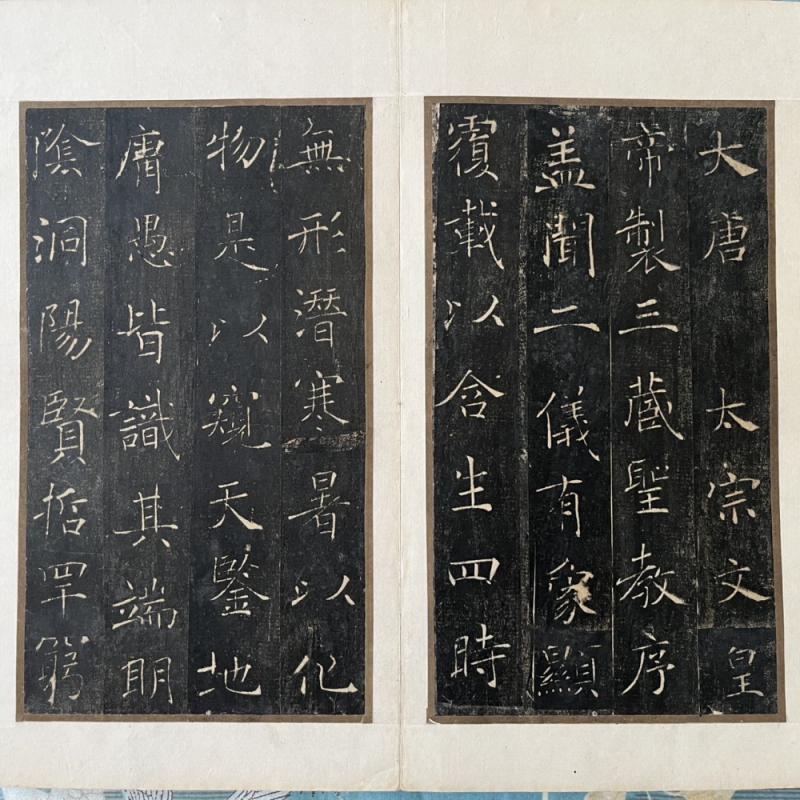 大唐 太宗文皇
帝製三藏聖教序
盖聞二儀有象顯
覆載以含生四時
無形潛寒暑以化
物是以窺天鑒地
庸愚皆識其端明
陰洞陽賢哲罕窮